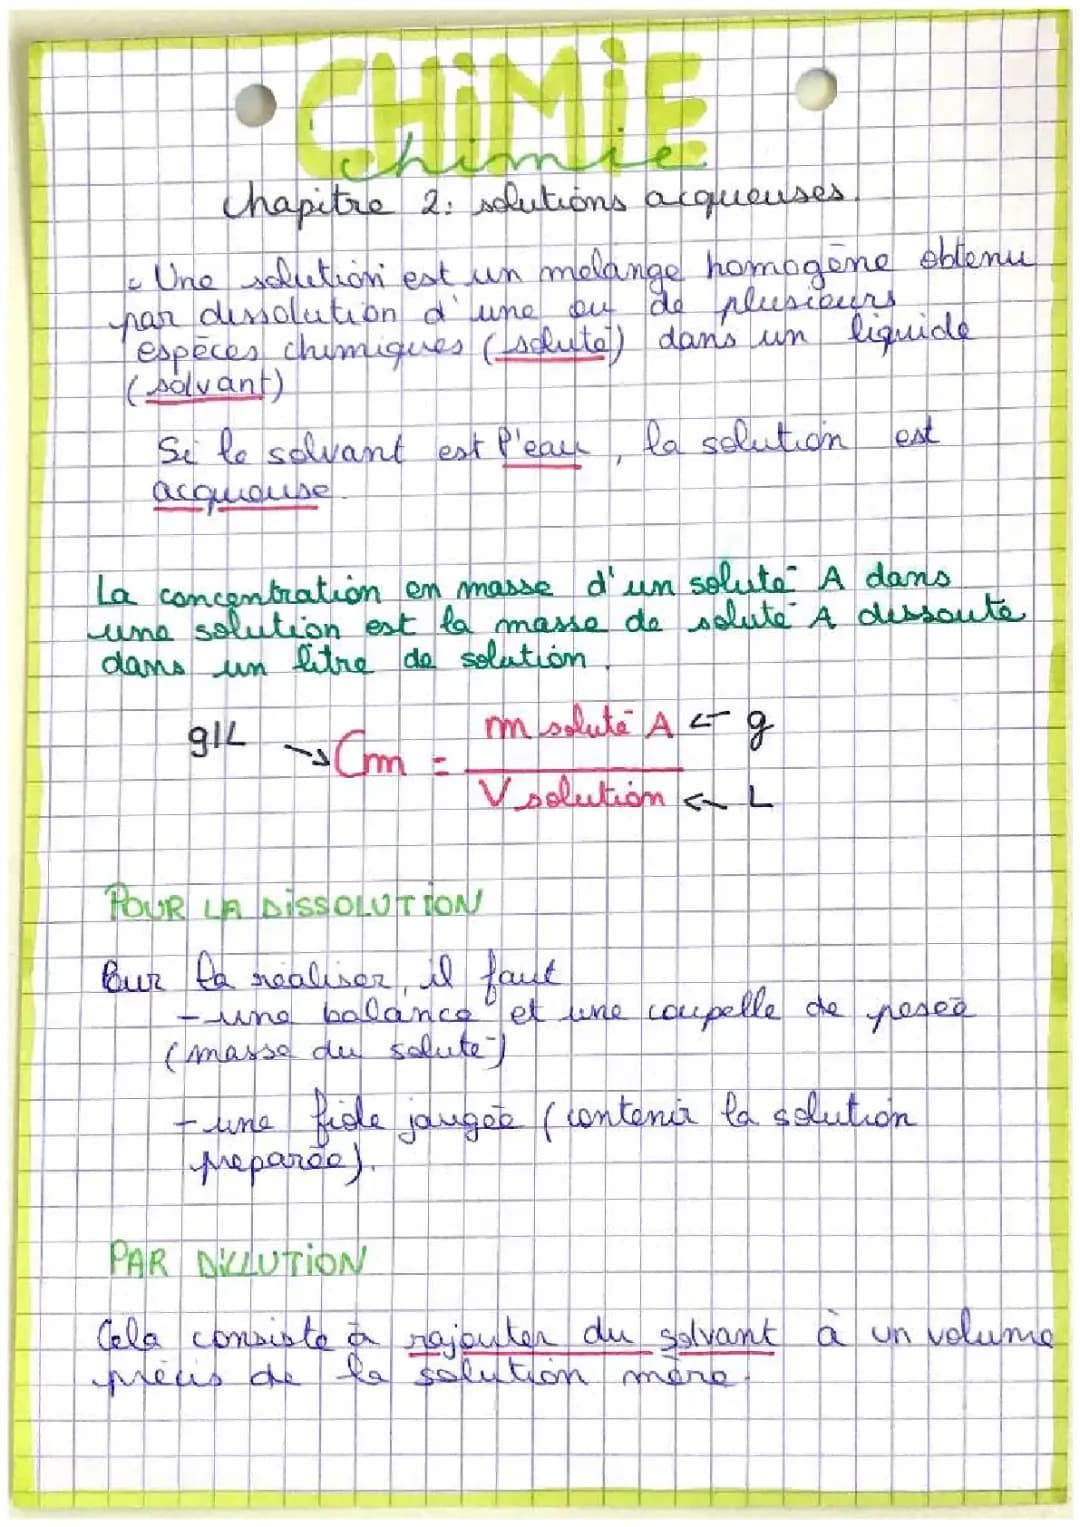 CHiMiE
chimie
Chapitre 2: solutions acqueuses.
- Une solution est un melange homogène obtenu
par dissolution d'une ou de plusieurs
espèces chimiques (soluté) dans un liquide
(solvant)
Si le solvant est l'eau, la solution est
acqueuse.
La concentration en masse d'un soluté A dans
une solution est la masse de soluté A dissoute
dans un litre de solution.
g/L → Cm = m soluté A ← g
V solution ← L
POUR LA DiSSOLUTiON
Pour la réaliser, il faut
- une balance et une coupelle de pesée
(masse du soluté)
- une fiole jaugée (contenir la solution
preparée).
PAR DiLLUTiON
Cela consiste à rajouter du solvant à un volume
précis de la solution mère.